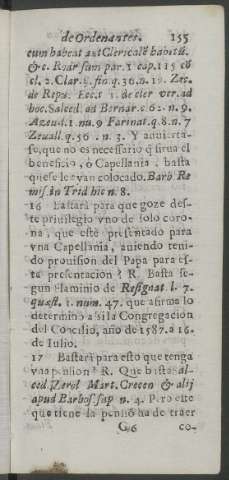 de Ordenantes. 155
eum habeat aut Clericalē habitū.
& c. Roār sum par. 1 cap. 115 cō
cl. 2. Clar. §. fio. q. 36. n. 19. Zec.
de Repu. Ecc. t de cler ver. ad
hoc. Salced. ad Bernar. c 62. n. 9.
Azeud. l. nu. 9 Farinat. q. 8. n. 7
Zeuall. q. 56. n. 3. Y aduierta-
se, que no es necessario q sirua el
beneficio, ò Capellania, basta
que se le ayan colocado. Barb Re
mis. in Trid hic n. 8.
16 Bastarà para que goze des-
te priuilegio vno de solo coro-
na, que estè presentado para
vna Capellania, auiendo teni-
do prouision del Papa para es-
ta presentacion? R. Basta se-
gun Flaminio de Resignat. l. 7.
quæst. 1. num. 47. que afirma lo
determinò assi la Congregacion
del Concilio, año de 1587. a 16.
de Iulio.
17 Bastarà para esto que tenga
vna pension? R. Que basta: al-
ced. Zerol Mart. Crecen & alij
apud Barbos. sup n. 4. Pero este
que tiene la pensiō ha de traer
G6 co-